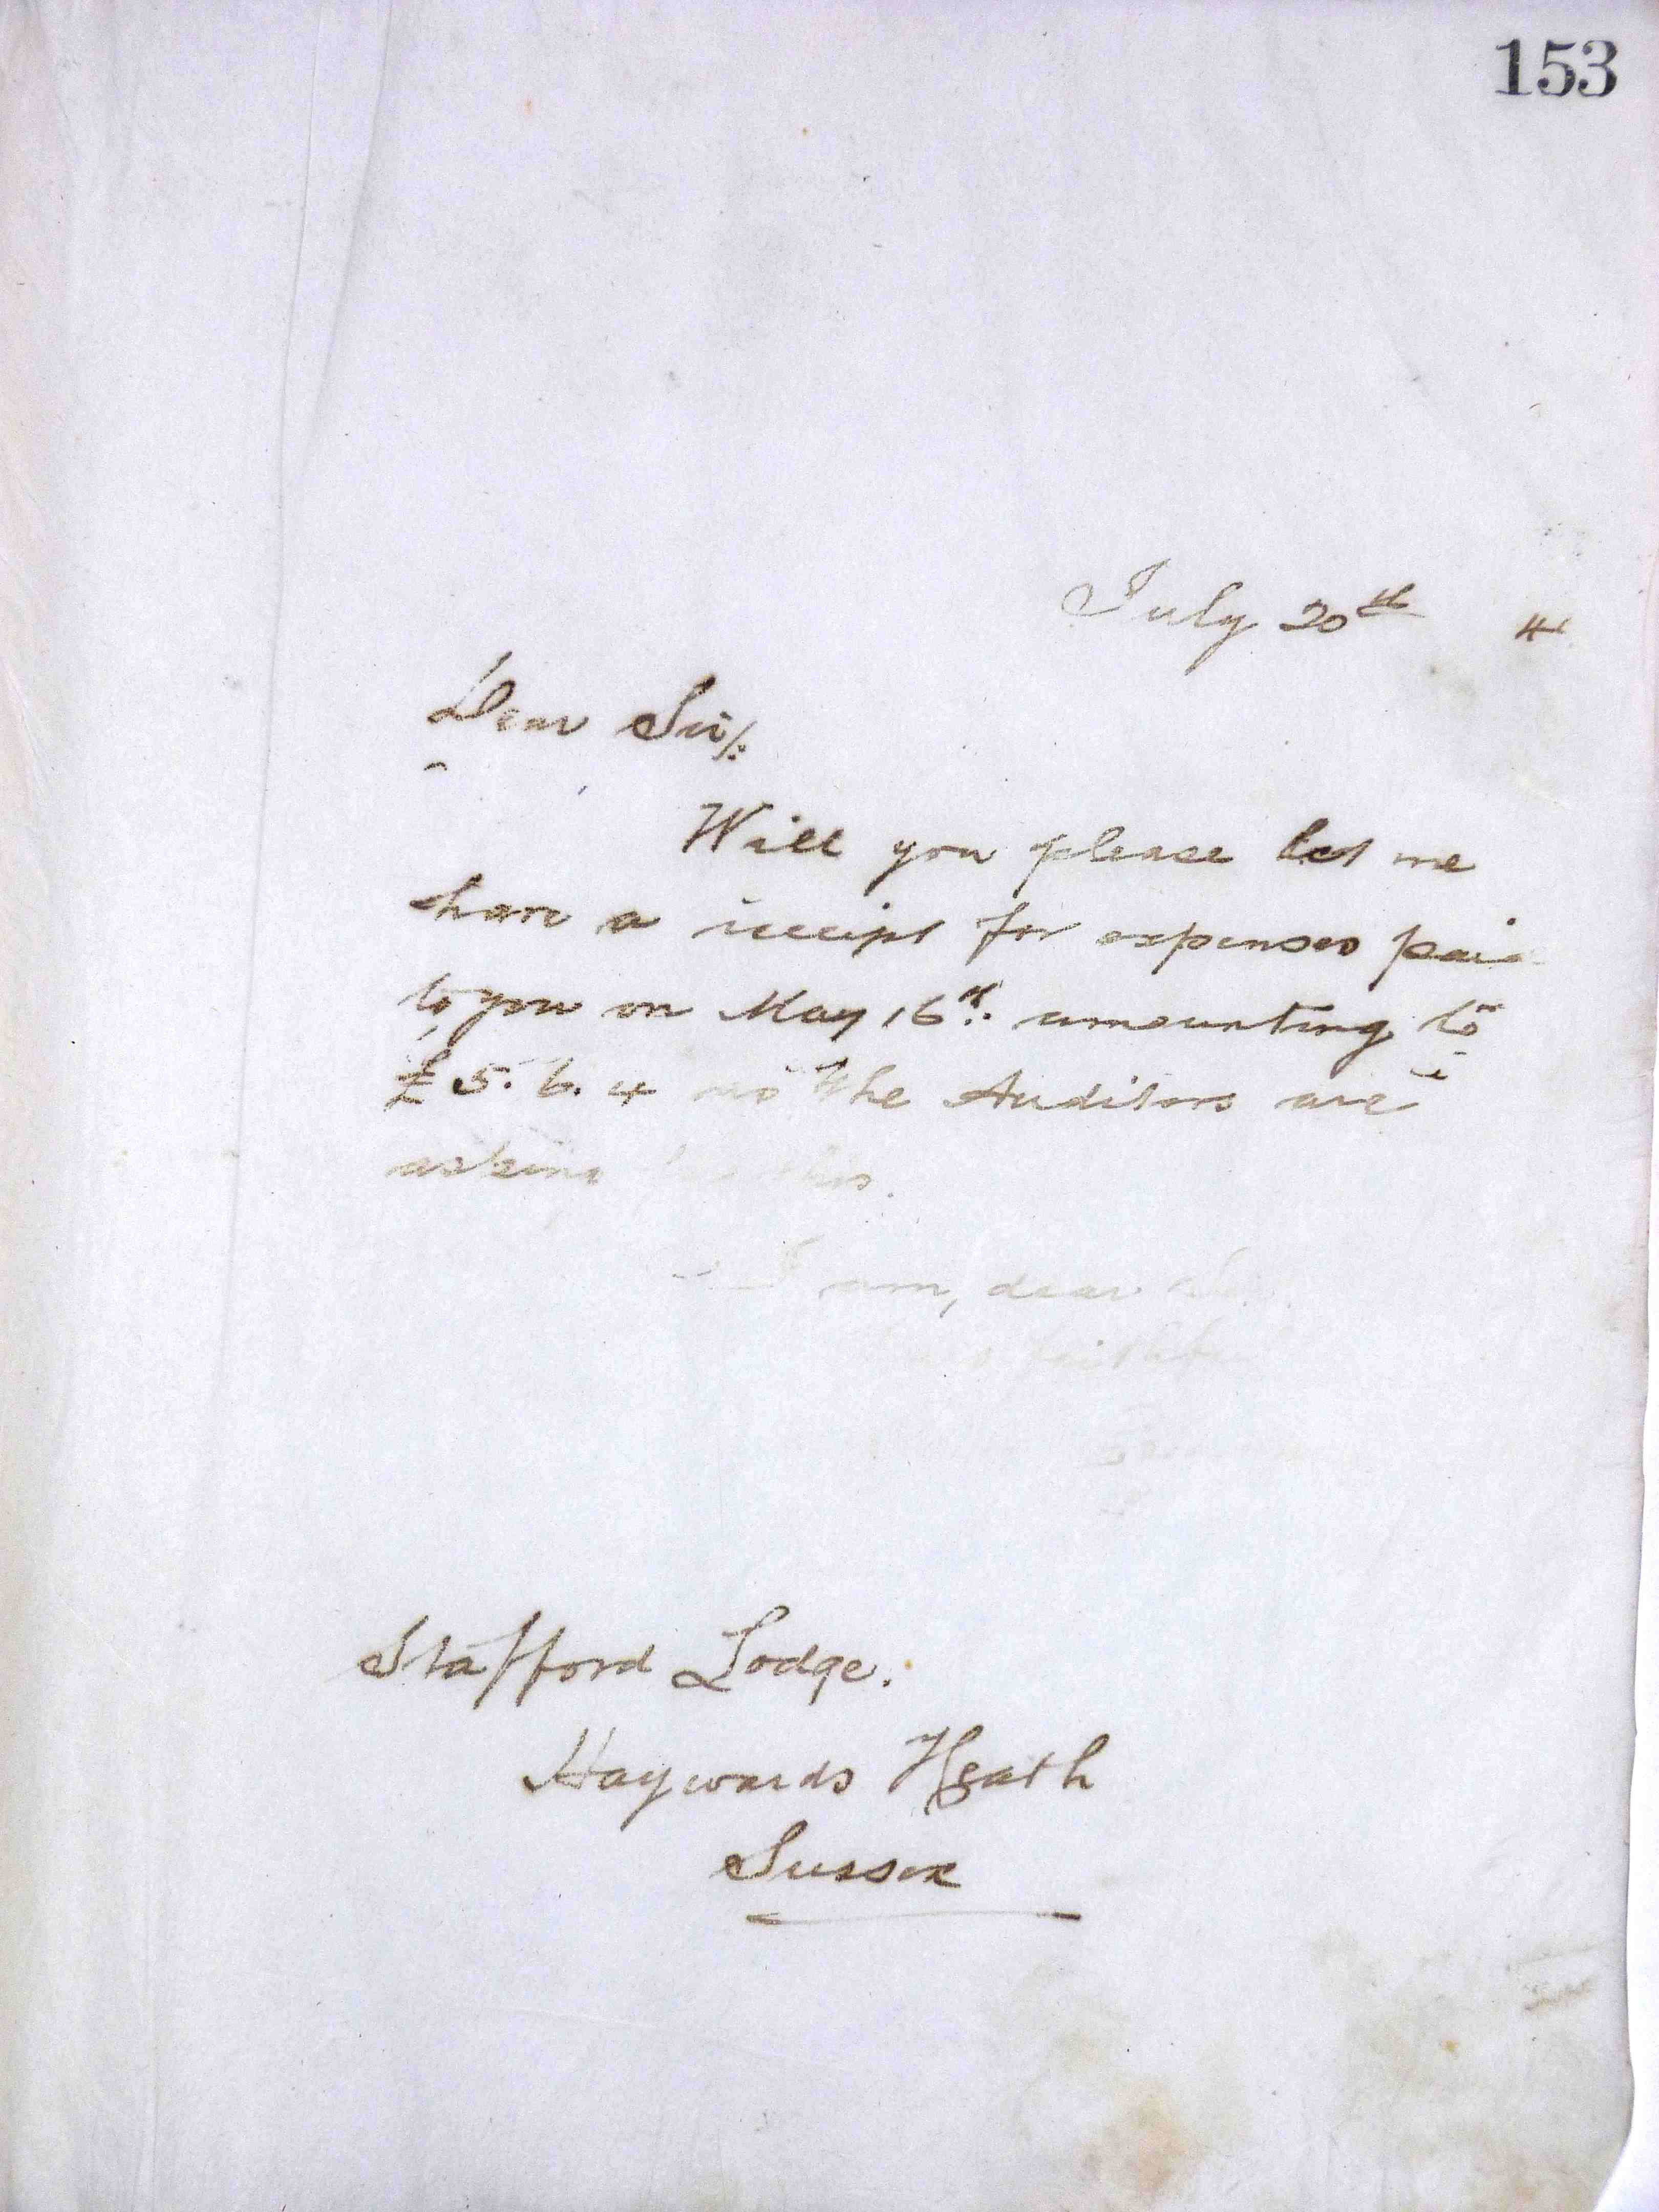 153
July 20th 4
Dear Sir/:
Will you please let me
have a receipt for expenses paid
to you on May 16th. amounting to
£5. 6. 4 as the Auditors are
asking for this.
I am, dear Sir,
Yours faithfully
Stafford Lodge.
Haywards Heath
Sussex